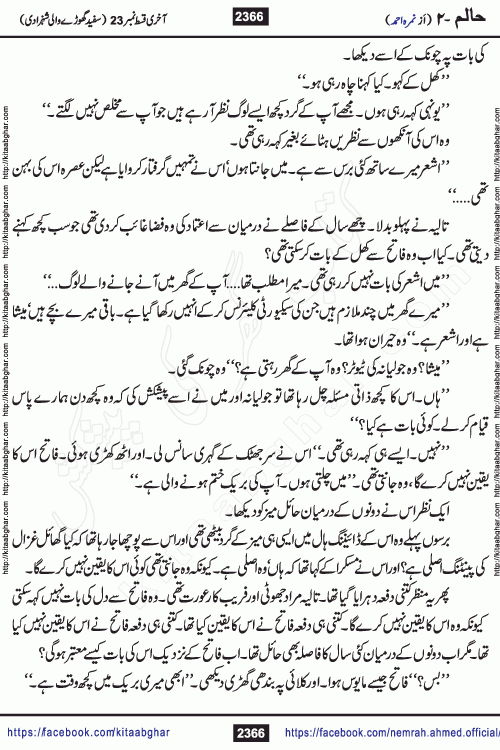 حالم -۲ (از نمرہ احمد) 2366 آخری قسط نمبر 23 (سفید گھوڑے والی شہزادی)
کی بات پہ چونک کے اسے دیکھا۔
’’کھل کے کہو۔ کیا کہنا چاہ رہی ہو۔‘‘
’’یونہی کہہ رہی ہوں۔ مجھے آپ کے گرد کچھ ایسے لوگ نظر آ رہے ہیں جو آپ سے مخلص نہیں لگتے۔‘‘
وہ اس کی آنکھوں سے نظریں ہٹائے بغیر کہہ رہی تھی۔
’’اشعر میرے ساتھ کئی برس سے ہے۔ میں جانتا ہوں‘ اس نے تمہیں گرفتار کروایا ہے لیکن عصرہ اس کی بہن
تھی.....‘‘
تالیہ نے پہلو بدلا۔ چھے سال کے فاصلے نے درمیان سے اعتماد کی وہ فضا غائب کر دی تھی جو سب کچھ کہنے
دیتی تھی۔ کیا اب وہ فاتح سے کھل کے بات کر سکتی تھی؟
’’میں اشعر کی بات نہیں کر رہی تھی۔ میرا مطلب تھا....آپ کے گھر میں آنے جانے والے لوگ...‘‘
’’میرے گھر میں چند ملازم ہیں جن کی سیکیورٹی کلیئرنس کر کے انہیں رکھا گیا ہے۔ باقی میرے بچے ہیں‘ میشا
ہے اور اشعر ہے۔‘‘ وہ حیران ہوا تھا۔
’’میشا؟ وہ جولیانہ کی ٹیوٹر؟ وہ آپ کے گھر رہتی ہے؟‘‘ وہ چونک گئی۔
’’ہاں۔ اس کا کچھ ذاتی مسئلہ چل رہا تھا تو جولیانہ اور میں نے اسے پیشکش کی کہ وہ کچھ دن ہمارے پاس
قیام کر لے۔ کوئی بات ہے کیا؟‘‘
’’نہیں۔ ایسے ہی کہہ رہی تھی۔‘‘ اس نے سر جھٹک کے گہری سانس لی۔ اور اٹھ کھڑی ہوئی۔ فاتح اس کا
یقین نہیں کرے گا‘ وہ جانتی تھی۔ ’’میں چلتی ہوں۔ آپ کی بریک ختم ہونے والی ہے۔‘‘
ایک نظر اس نے دونوں کے درمیان حائل میز کو دیکھا۔
برسوں پہلے وہ اس کے ڈائیننگ ہال میں ایسی ہی میز کے گرد بیٹھی تھی اور اس سے پوچھا جا رہا تھا کہ کیا گھائل غزال
کی پینٹنگ اصلی ہے؟ اور اس نے مسکرا کے کہا تھا کہ ہاں‘ وہ اصلی ہے۔ کیونکہ وہ جانتی تھی کوئی اس کا یقین نہیں کرے گا۔
پھر یہ منظر کتنی دفعہ دہرایا گیا تھا۔ تالیہ مراد جھوٹی اور فریب کار عورت تھی۔ وہ فاتح سے دل کی بات نہیں کہہ سکتی
کیونکہ وہ اس کا یقین نہیں کرے گا۔ کتنی ہی دفعہ فاتح نے اس کا یقین کیا تھا۔ کتنی ہی دفعہ فاتح نے اس کا یقین نہیں کیا
تھا۔ مگر اب دونوں کے درمیان کئی سال کا فاصلہ بھی حائل تھا۔ اب فاتح کے نزدیک اس کی بات کیسے معتبر ہوگی؟
’’بس؟‘‘ فاتح جیسے مایوس ہوا۔ اور کلائی پہ بندھی گھڑی دیکھی۔ ’’ابھی میری بریک میں کچھ وقت ہے۔‘‘
https://facebook.com/kitaabghar 2366 https://facebook.com/nemrah.ahmed.official/
http://kitaabghar.com http://kitaabghar.com http://kitaabghar.com http://kitaabghar.com http://kitaabghar.com
http://kitaabghar.com http://kitaabghar.com http://kitaabghar.com http://kitaabghar.com http://kitaabghar.com